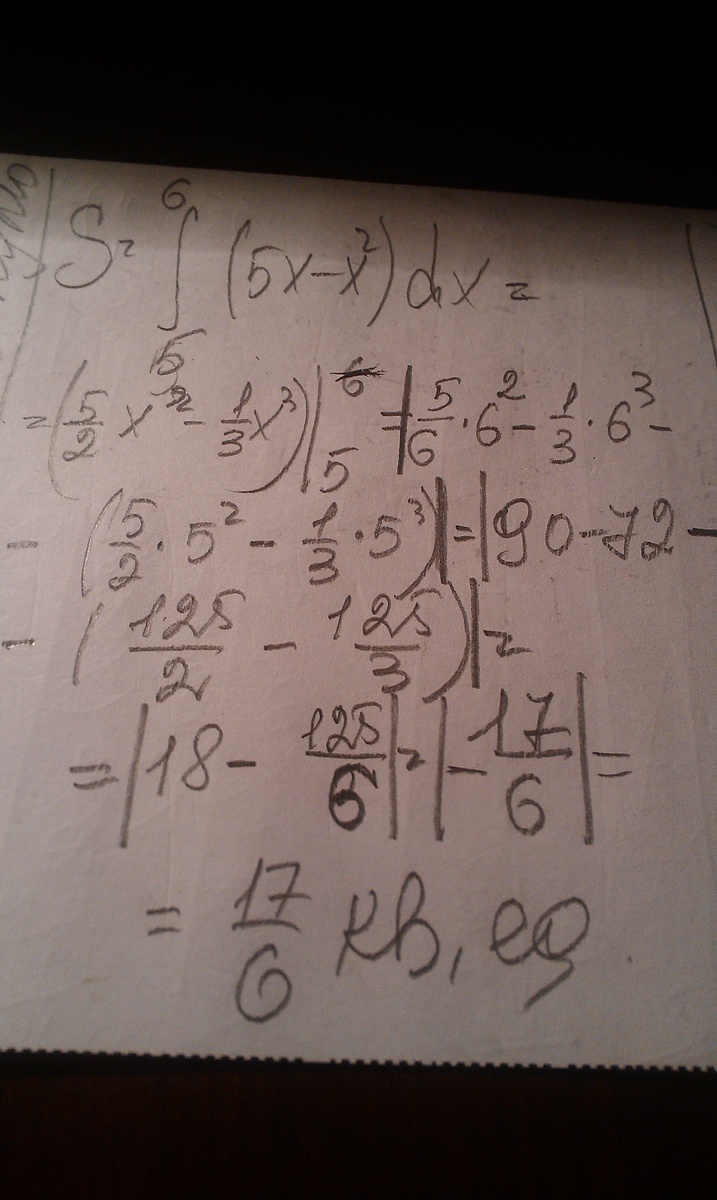 S = ∫₅⁶ (5x − x²) dx =
= (5/2 x² − 1/3 x³) |₅⁶ = |5/6 · 6² − 1/3 · 6³ −
− (5/2 · 5² − 1/3 · 5³)| = |90 − 72 −
− (125/2 − 125/3)| =
= |18 − 125/6| = |− 17/6| =
= 17/6 кв, ед.